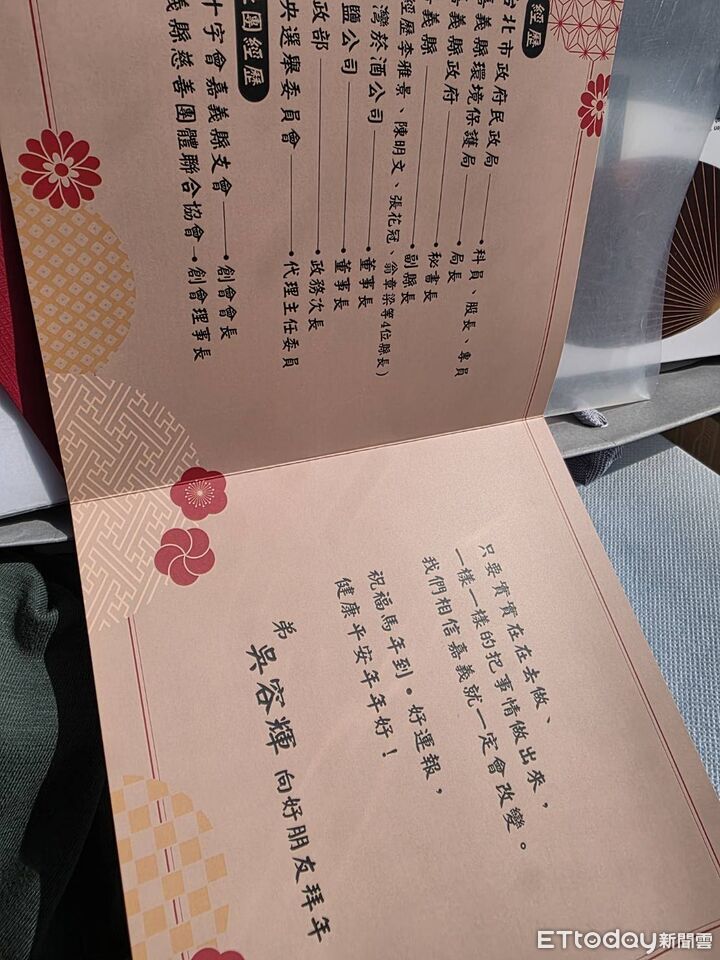 經歷
台北市政府民政局 科員、股長、專員
嘉義縣環境保護局 局長
嘉義縣政府 秘書長
嘉義縣 副縣長
經歷李雅景、陳明文、張花冠、翁章梁等4位縣長)
灣菸酒公司 董事長
鹽公司 董事長
政部 政務次長
央選舉委員會 代理主任委員
團經歷
十字會嘉義縣支會 創會會長
義縣慈善團體聯合協會 創會理事長
只要實實在在去做、
一樣一樣的把事情做出來,
我們相信嘉義就一定會改變。
祝福馬年到•好運報,
健康平安年年好!
弟 吳容輝 向好朋友拜年
ETtoday新聞雲